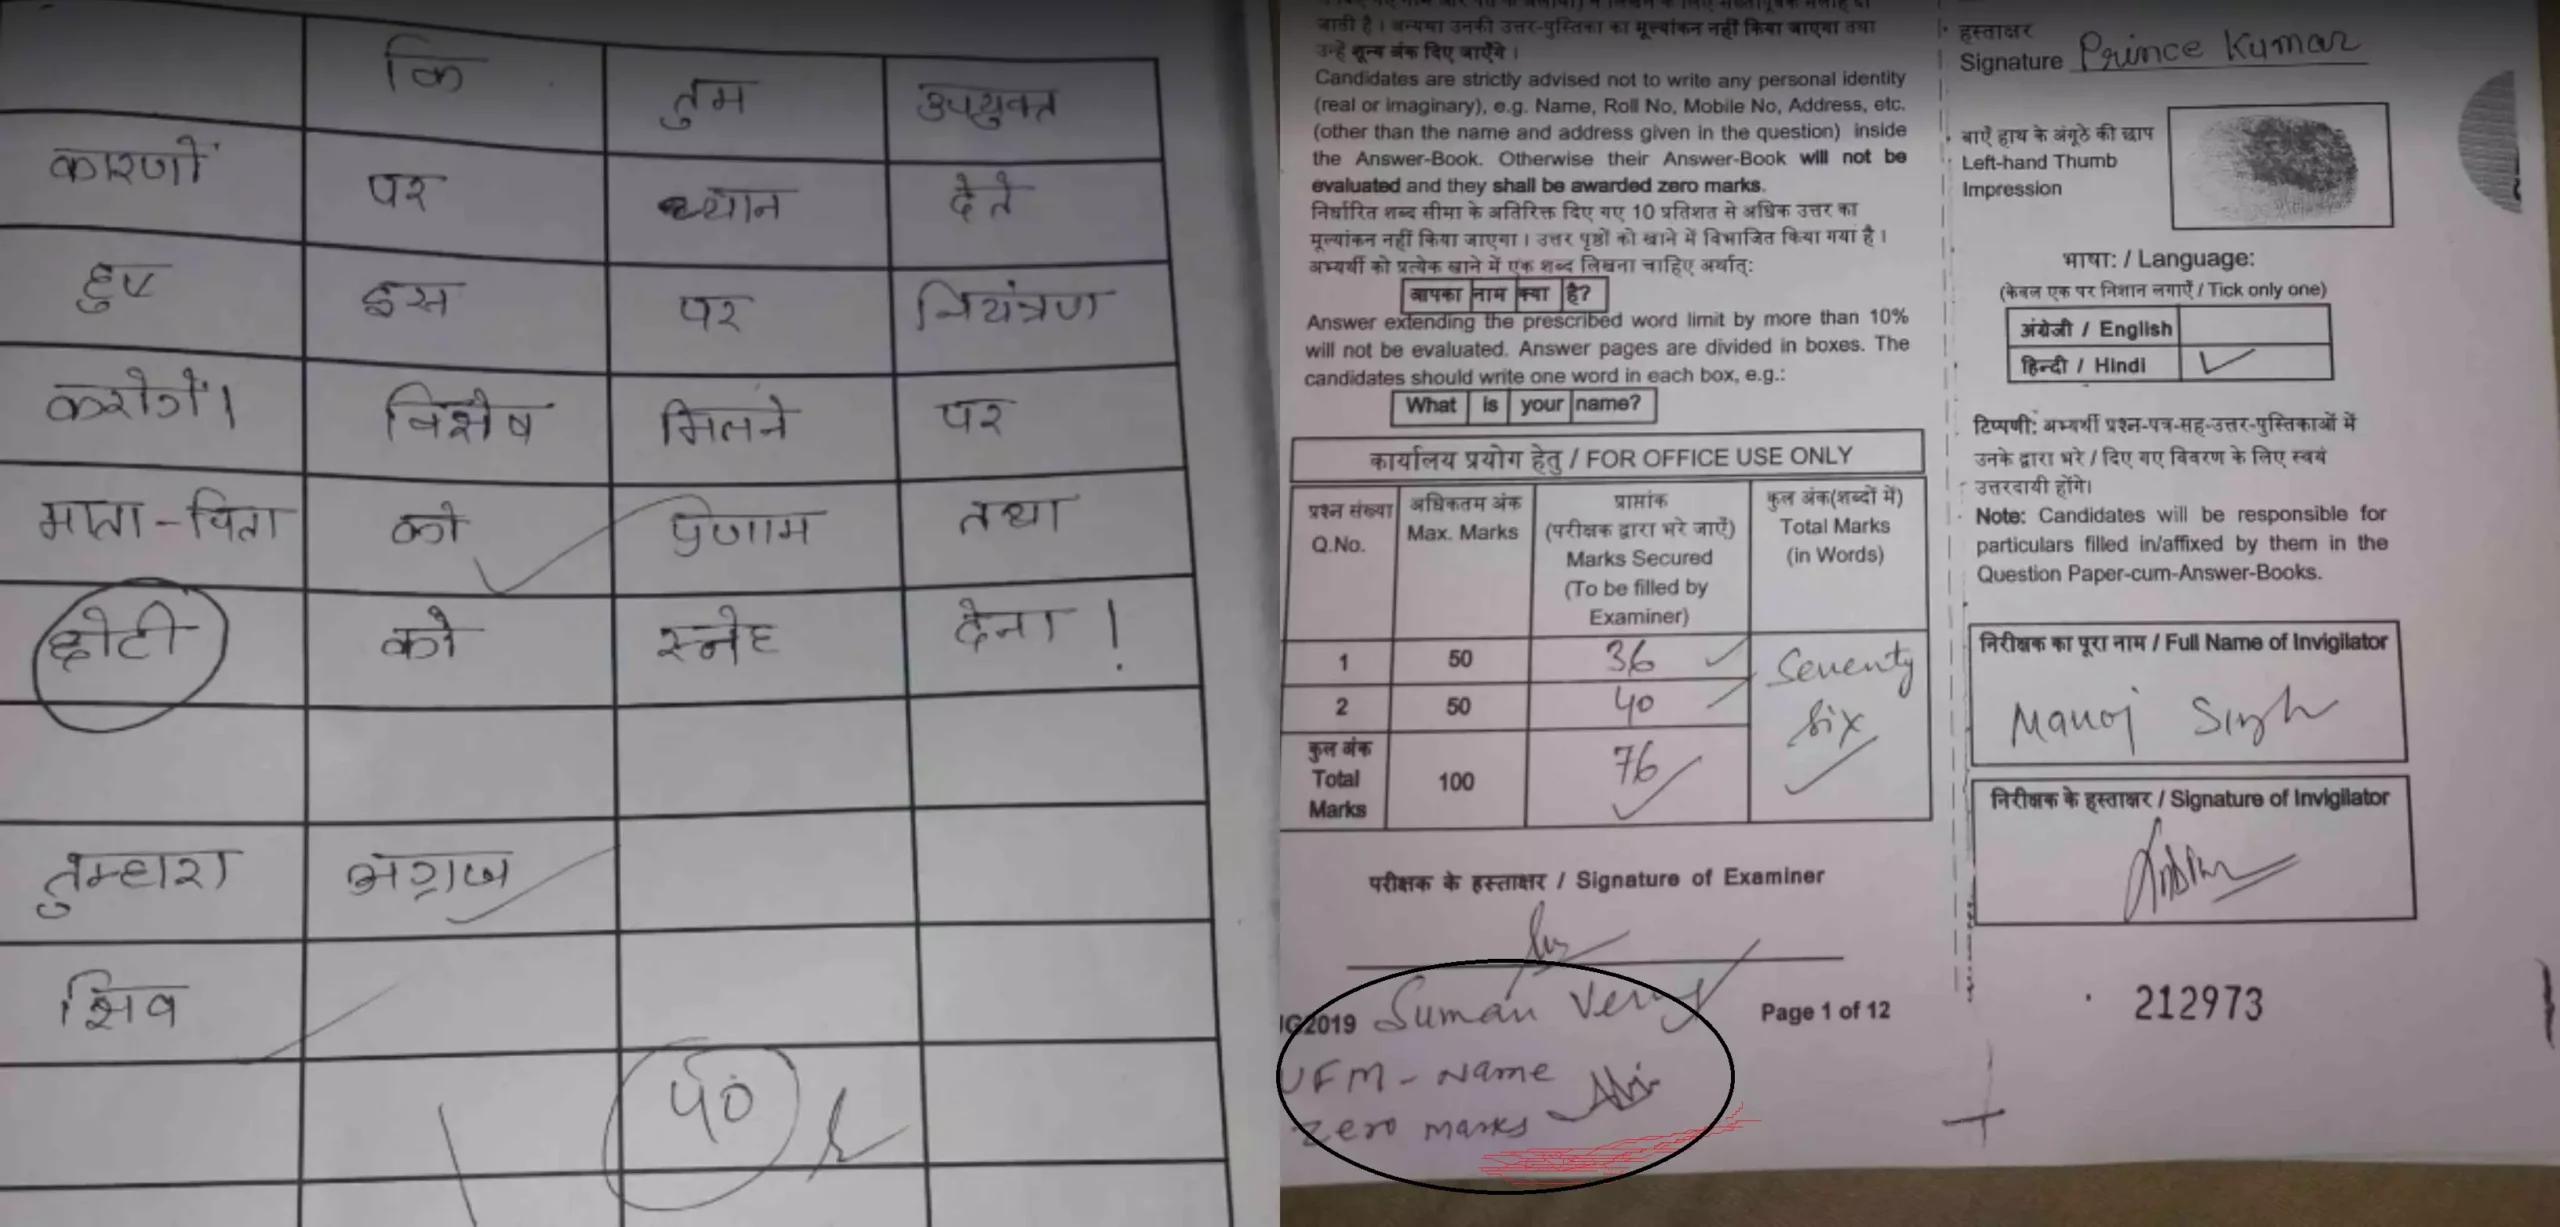 कि तुम उपयुक्त
कारणों पर ध्यान देते
हुए इस पर नियंत्रण
करोगें। विशेष मिलने पर
माता-पिता को प्रणाम तथा
छोटी को स्नेह देना!
तुम्हारा अग्रज
शिव
40
जाती है। अन्यथा उनकी उत्तर-पुस्तिका का मूल्यांकन नहीं किया जाएगा तथा
उन्हें शून्य अंक दिए जाएँगे।
Candidates are strictly advised not to write any personal identity
(real or imaginary), e.g. Name, Roll No, Mobile No, Address, etc.
(other than the name and address given in the question) inside
the Answer-Book. Otherwise their Answer-Book will not be
evaluated and they shall be awarded zero marks.
निर्धारित शब्द सीमा के अतिरिक्त दिए गए 10 प्रतिशत से अधिक उत्तर का
मूल्यांकन नहीं किया जाएगा। उत्तर पृष्ठों को खाने में विभाजित किया गया है।
अभ्यर्थी को प्रत्येक खाने में एक शब्द लिखना चाहिए अर्थात्:
आपका नाम क्या है?
Answer extending the prescribed word limit by more than 10%
will not be evaluated. Answer pages are divided in boxes. The
candidates should write one word in each box, e.g.:
What is your name?
कार्यालय प्रयोग हेतु / FOR OFFICE USE ONLY
प्रश्न संख्या Q.No. अधिकतम अंक Max. Marks प्राप्तांक (परीक्षक द्वारा भरे जाएँ) Marks Secured (To be filled by Examiner) कुल अंक(शब्दों में) Total Marks (in Words)
1 50 36 Seventy
2 50 40 Six
कुल अंक Total Marks 100 76
परीक्षक के हस्ताक्षर / Signature of Examiner
G2019 Suman Page 1 of 12
UFM - Name
Zero marks
हस्ताक्षर
Signature Prince Kumar
बाएँ हाथ के अंगूठे की छाप
Left-hand Thumb
Impression
भाषा: / Language:
(केवल एक पर निशान लगाएँ / Tick only one)
अंग्रेजी / English
हिन्दी / Hindi ✓
टिप्पणी: अभ्यर्थी प्रश्न-पत्र-सह-उत्तर-पुस्तिकाओं में
उनके द्वारा भरे / दिए गए विवरण के लिए स्वयं
उत्तरदायी होंगे।
Note: Candidates will be responsible for
particulars filled in/affixed by them in the
Question Paper-cum-Answer-Books.
निरीक्षक का पूरा नाम / Full Name of Invigilator
Manoj Singh
निरीक्षक के हस्ताक्षर / Signature of Invigilator
212973